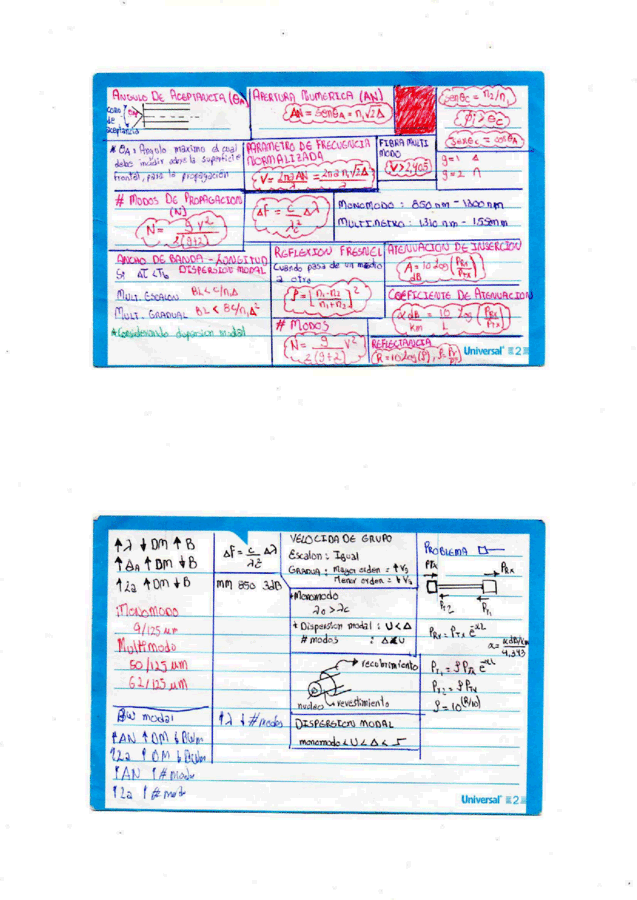 ANGULO DE ACEPTANCIA (θA)
cono
de
aceptancia
θA
APERTURA NUMERICA (AN)
AN = senθA = n₁√2Δ
senθc = n₂/n₁
φi ≥ θc
senθc = cosθA
* θA: Angulo maximo al cual
debo incidir sobre la superficie
frontal, para la propagación
PARAMETRO DE FRECUENCIA
NORMALIZADA
V = 2πa AN = 2πa n₁√2Δ
FIBRA MULTI
MODO
V > 2,405
g=1 Δ
g=2 ∩
# MODOS DE PROPAGACION
(N)
N = g V² / 2(g+2)
Δf = c/λ² Δλ
MONOMODO : 850 nm - 1300 nm
MULTIMETRO : 1310 nm - 1550nm
ANCHO DE BANDA - LONGITUD
Si ΔT < Tb DISPERSION MODAL
MULT. ESCALON BL < C/n₁Δ
MULT. GRADUAL BL < 8C/n₁Δ²
* Considerando dispersion modal
REFLEXION FRESNEL
Cuando pasa de un medio
a otro
ρ = [n₁-n₂ / n₁+n₂]²
# MODOS
N = g / 2(g+2) V²
ATENUACION DE INSERCION
A dB = 10 log (PRx / PTx)
COEFICIENTE DE ATENUACION
α dB/km = 10/L log (PRx / PTx)
REFLECTANCIA
R = 10 log (ρ), ρ =
Universal 2
↑λ ↓DM ↑B
↑θA ↑DM ↓B
↑2a ↑DM ↓B
MONOMODO
9/125 μm
Multimodo
50/125 μm
62/125 μm
BW modal
↑AN ↑DM ↓
↑2a ↑DM ↓
↑AN ↑# modos
↑2a ↑# mod
Δf = c/λ² Δλ
MM 850 3dB
↑λ ↓ # modos
VELOCIDAD DE GRUPO
Escalon : Igual
GRADUA : Mayor orden = ↑Vg
Menor orden = ↓Vg
* Monomodo
λo > λc
* Dispersion modal : U < Δ
# modos : Δ U
recubrimiento
nucleo
revestimiento
DISPERSION MODAL
monomodo < U < Δ <
PROBLEMA
PTx
PRx
Pr2
Pr1
PRx = PTx e^-αL
α = αdB/km / 4,343
Pr1 = ρ PTx e^-αL
Pr2 = ρ PTx
ρ = 10^(R/10)
Universal 2